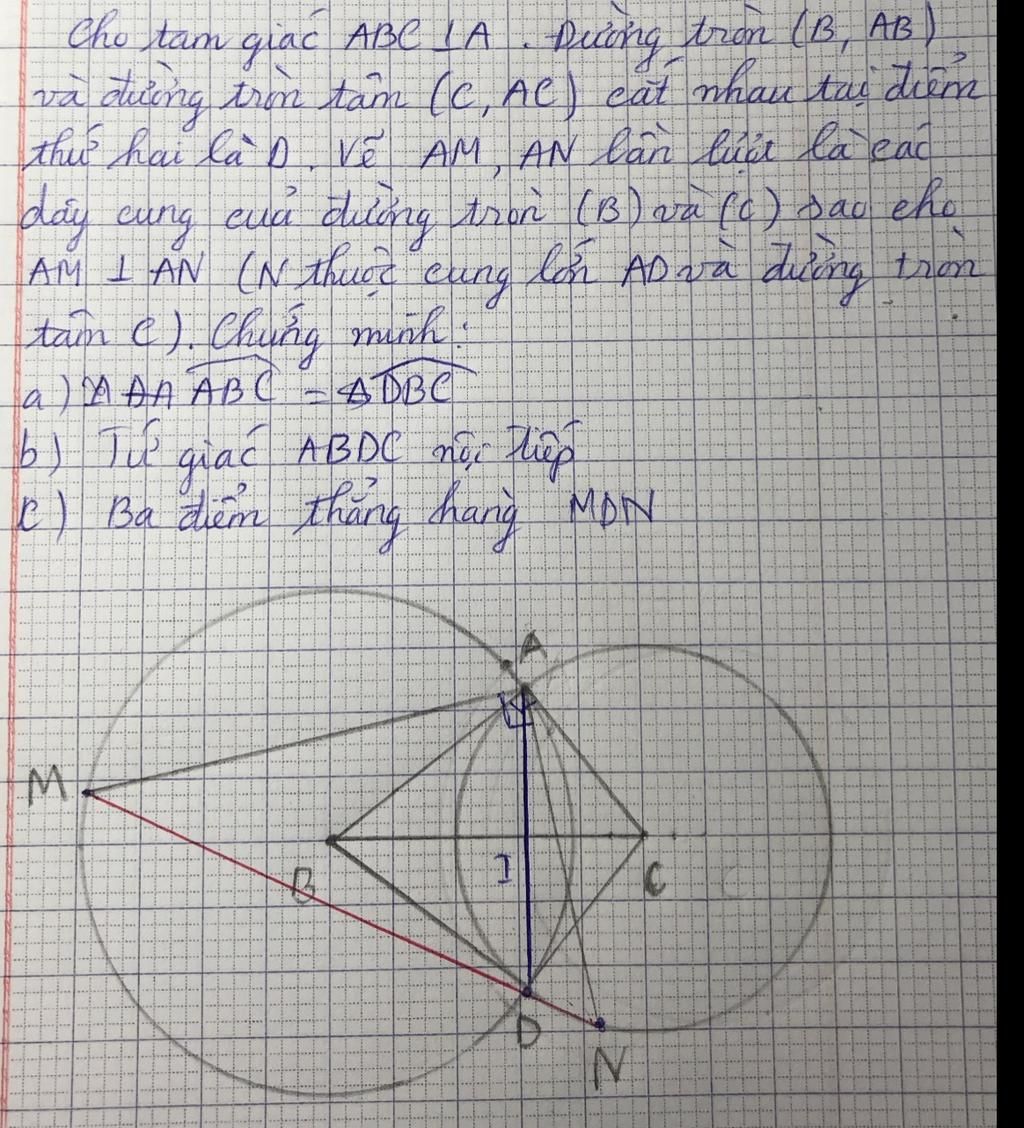 Cho tam giác ABC ⊥ A. Đường tròn (B, AB)
và đường tròn tâm (C, AC) cắt nhau tại điểm
thứ hai là D. Vẽ AM, AN lần lượt là các
dây cung của đường tròn (B) và (C) sao cho
AM ⊥ AN (N thuộc cung lớn AD và đường tròn
tâm C). Chứng minh:
a) ABC = DBC
b) Tứ giác ABDC nội tiếp
c) Ba điểm thẳng hàng MDN
A
M
B
I
C
D
N